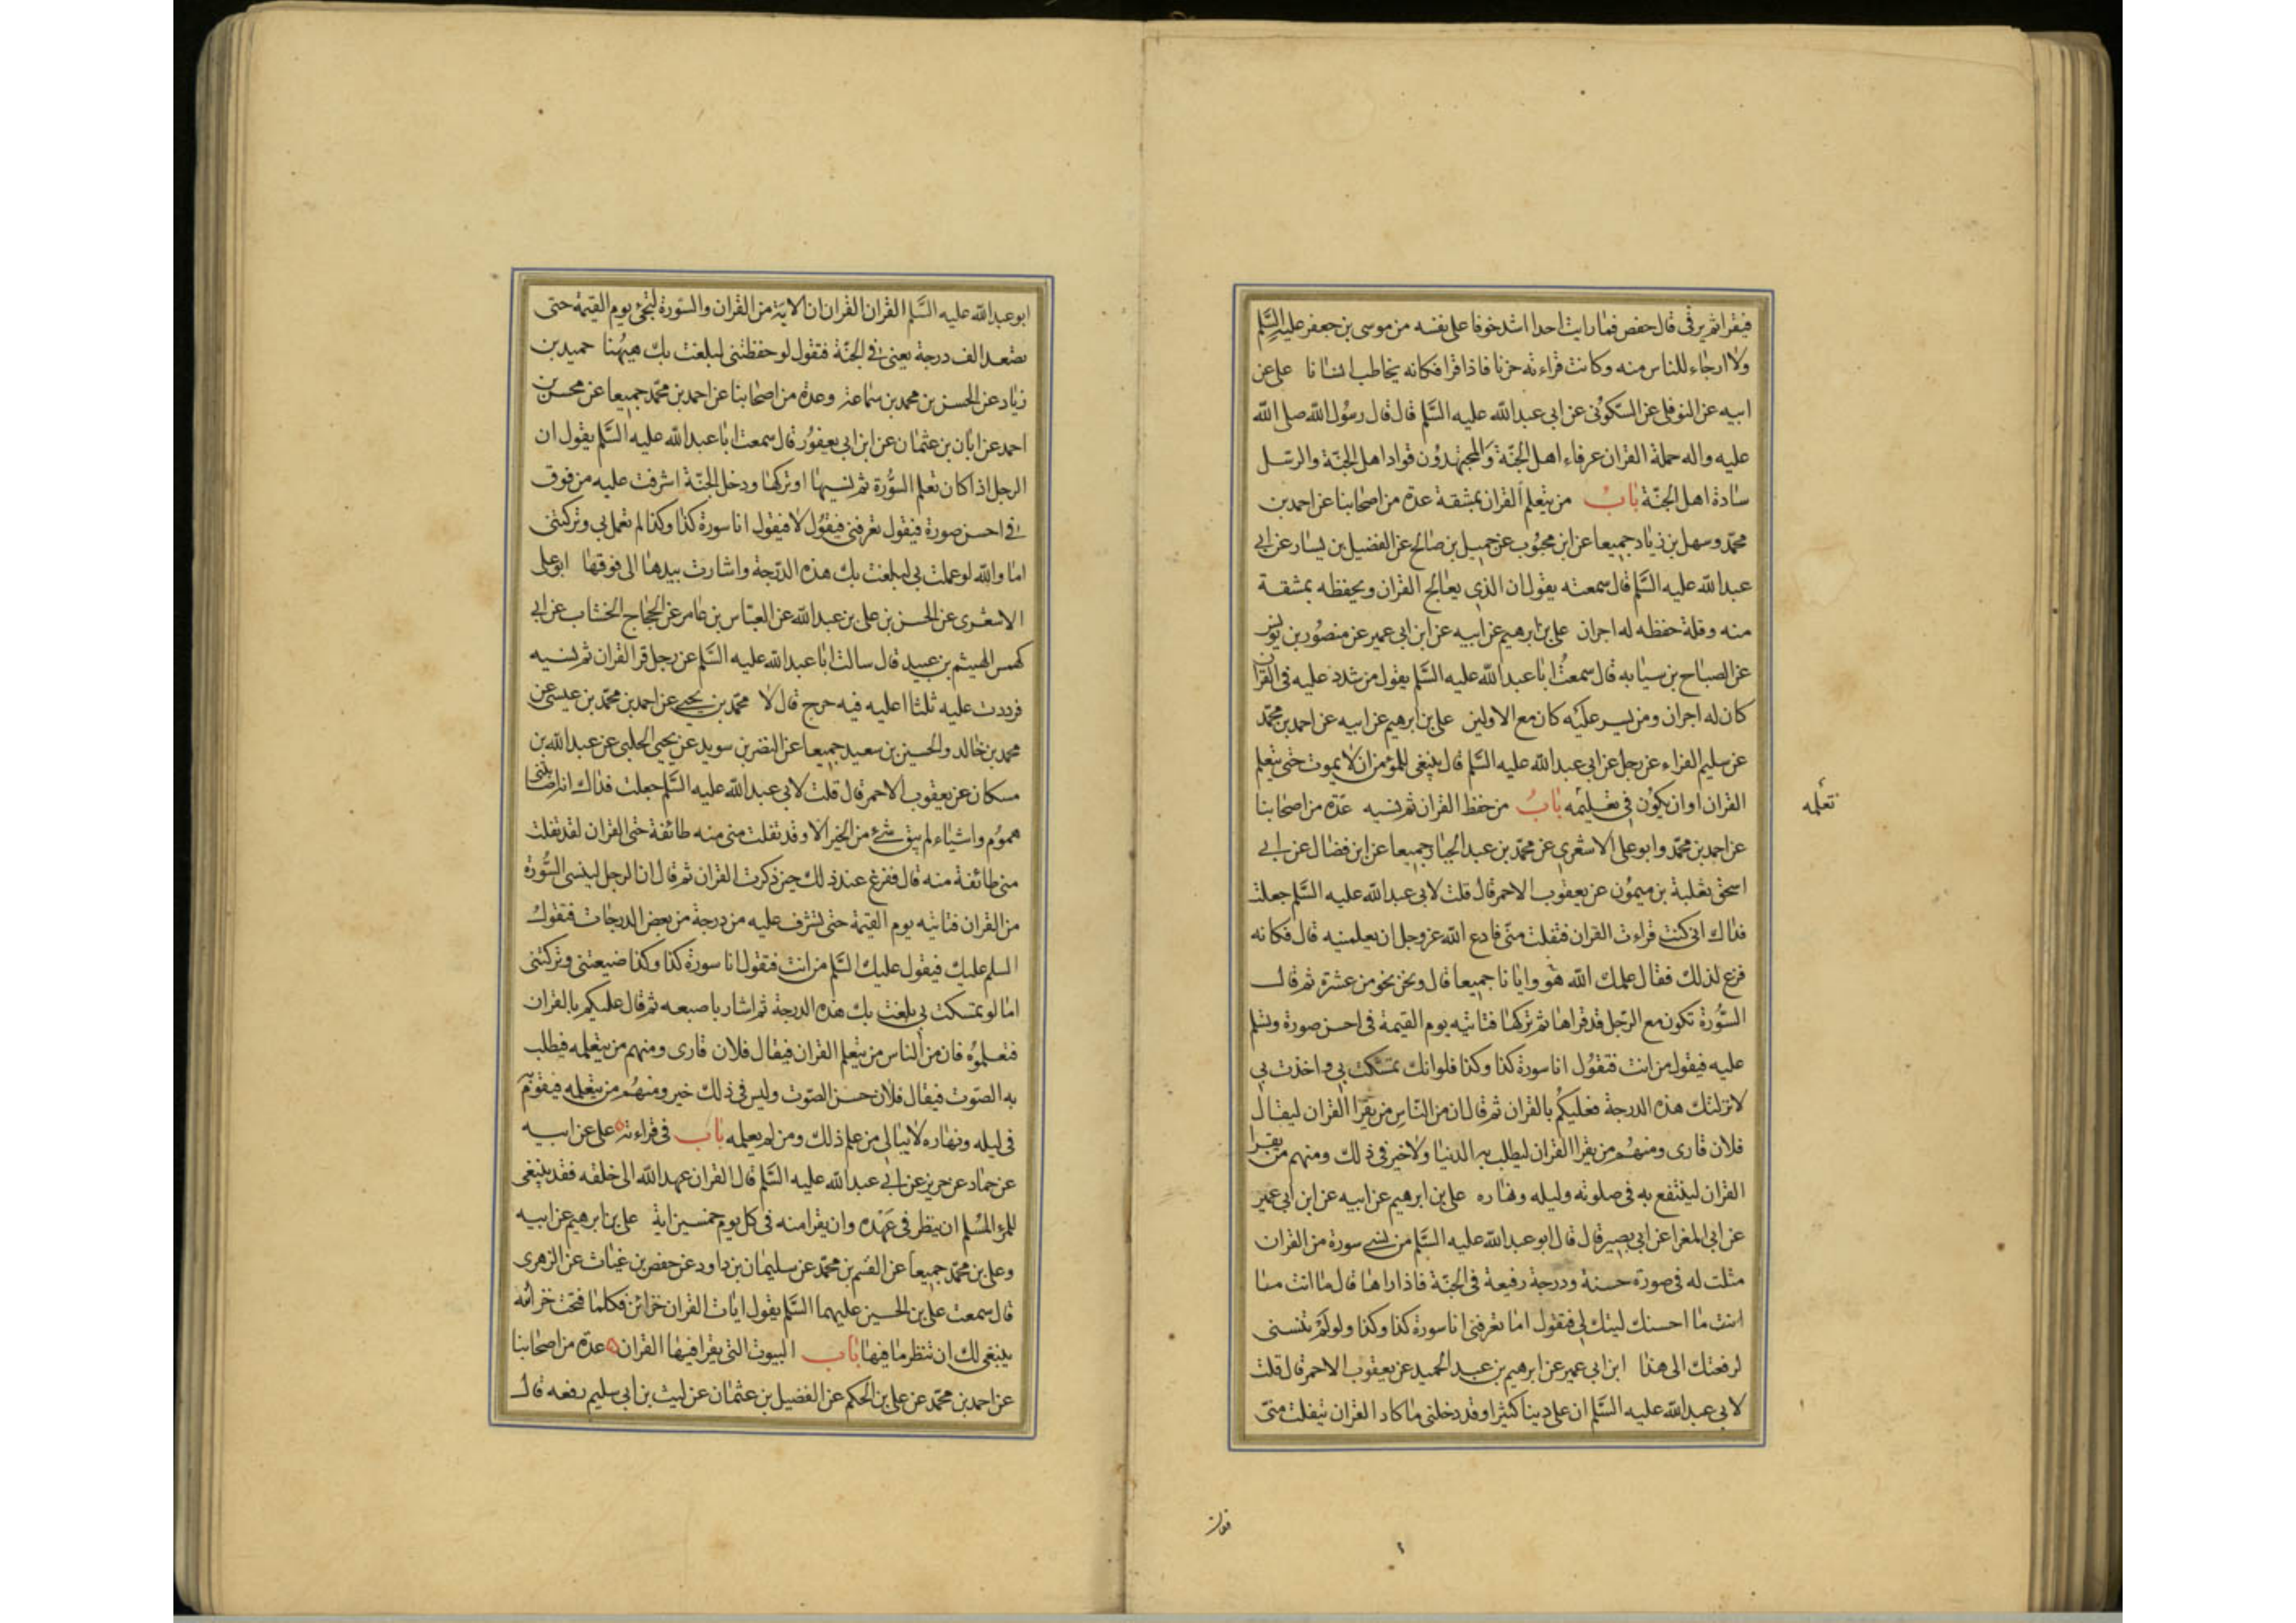 فيقرا ثم يرقى قال حفص فما رايت احدا اشد خوفا على نفسه من موسى بن جعفر عليه السلم
ولا ارجاء للناس منه وكانت قراءته حزنا فاذا قرا فكانه يخاطب انسانا على عن
ابيه عن النوفلى عن السكونى عن ابى عبد الله عليه السلم قال قال رسول الله صلى الله
عليه واله حملة القران عرفاء اهل الجنة والمجتهدون قواد اهل الجنة والرسل
سادة اهل الجنة باب من يتعلم القران بمشقة عدة من اصحابنا عن احمد بن
محمد وسهل بن زياد جميعا عن ابن محبوب عن جميل بن صالح عن الفضيل بن يسار عن ابى
عبد الله عليه السلم قال سمعته يقول ان الذى يعالج القران ويحفظه بمشقة
منه وقلة حفظه له اجران على بن ابرهيم عن ابيه عن ابن ابى عمير عن منصور بن يونس
عن الصباح بن سيابه قال سمعت ابا عبد الله عليه السلم يقول من شدد عليه فى القران
كان له اجران ومن يسر عليه كان مع الاولين على بن ابرهيم عن ابيه عن احمد بن محمد
عن سليم الفراء عن رجل عن ابى عبد الله عليه السلم قال ينبغى للمؤمن ان لا يموت حتى يتعلم
القران او ان يكون فى تعليمه باب من حفظ القران ثم نسيه عدة من اصحابنا
تعلمه
عن احمد بن محمد وابو على الاشعرى عن محمد بن عبد الجبار جميعا عن ابن فضال عن ابى
اسحق ثعلبة بن ميمون عن يعقوب الاحمر قال قلت لابى عبد الله عليه السلم جعلت
فداك انى كنت قراءت القران ففلت منى فادع الله عز وجل ان يعلمنيه قال فكانه
فزع لذلك فقال علمك الله هو وايانا جميعا قال ونحن نحو من عشرة ثم قال
السورة تكون مع الرجل قد قراها ثم تركها فتاتيه يوم القيمة فى احسن صورة وتسلم
عليه فيقول من انت فتقول انا سورة كذا وكذا فلو انك تمسكت بى واخذت بى
لانزلتك هذه الدرجة فعليكم بالقران ثم قال ان من الناس من يقرا القران ليقال
فلان قارى ومنهم من يقرا القران ليطلب به الدنيا ولا خير فى ذلك ومنهم من يقرا
القران لينتفع به فى صلوته وليله ونهاره على بن ابرهيم عن ابيه عن ابن ابى عمير
عن ابى المغرا عن ابى بصير قال قال ابو عبد الله عليه السلم من نسى سورة من القران
مثلت له فى صورة حسنة ودرجة رفيعة فى الجنة فاذا راها قال ما انت منا
انت ما احسنك ليتك لى فتقول اما تعرفنى انا سورة كذا وكذا ولو لم تنسنى
لرفعتك الى هذا ابن ابى عمير عن ابرهيم بن عبد الحميد عن يعقوب الاحمر قال قلت
لابى عبد الله عليه السلم ان على دينا كثيرا وقد دخلنى ما كاد القران يتفلت منى
فقال
ابو عبد الله عليه السلم القران القران ان الاية من القران والسورة لتجئ يوم القيمة حتى
تصعد الف درجة يعنى فى الجنة فتقول لو حفظتنى لبلغت بك هيهنا حميد بن
زياد عن الحسن بن محمد بن سماعة وعدة من اصحابنا عن احمد بن محمد جميعا عن محسن بن
احمد عن ابان بن عثمان عن ابن ابى يعفور قال سمعت ابا عبد الله عليه السلم يقول ان
الرجل اذا كان تعلم السورة ثم نسيها او تركها ودخل الجنة اشرفت عليه من فوق
فى احسن صورة فيقول تعرفنى فيقول لا فيقول انا سورة كذا وكذا لم تعمل بى وتركتنى
اما والله لو عملت بى لبلغت بك هذه الدرجة واشارت بيدها الى فوقها ابو على
الاشعرى عن الحسن بن على بن عبد الله عن العباس بن عامر عن الحجاج الخشاب عن ابى
كهمس الهيثم بن عبيد قال سالت ابا عبد الله عليه السلم عن رجل قرا القران ثم نسيه
فرددت عليه ثلثا اعليه فيه حرج قال لا محمد بن يحيى عن احمد بن محمد بن عيسى عن
محمد بن خالد والحسين بن سعيد جميعا عن النضر بن سويد عن يحيى الحلبى عن عبد الله بن
مسكان عن يعقوب الاحمر قال قلت لابى عبد الله عليه السلم جعلت فداك انه اصابتنى
هموم واشياء لم يبق شئ من الخير الا وقد تفلت منى منه طائفة حتى القران لقد تفلت
منى طائفة منه قال ففزع عند ذلك حين ذكرت القران ثم قال ان الرجل لينسى السورة
من القران فتاتيه يوم القيمة حتى تشرف عليه من درجة من بعض الدرجات فتقول
السلم عليك فيقول عليك السلم من انت فتقول انا سورة كذا وكذا ضيعتنى وتركتنى
اما لو تمسكت بى بلغت بك هذه الدرجة ثم اشار باصبعه ثم قال عليكم بالقران
فتعلموه فان من الناس من يتعلم القران فيقال فلان قارى ومنهم من يتعلمه فيطلب
به الصوت فيقال فلان حسن الصوت وليس فى ذلك خير ومنهم من يتعلمه فيقوم به
فى ليله ونهاره لا يبالى من علم ذلك ومن لم يعلمه باب فى قراءته على عن ابيه
عن حماد عن حريز عن ابى عبد الله عليه السلم قال القران عهد الله الى خلقه فقد ينبغى
للمرء المسلم ان ينظر فى عهده وان يقرا منه فى كل يوم خمسين اية على بن ابرهيم عن ابيه
وعلى بن محمد جميعا عن القسم بن محمد عن سليمان بن داود عن حفص بن غياث عن الزهرى
قال سمعت على بن الحسين عليهما السلم يقول ايات القران خزائن فكلما فتحت خزانه
ينبغى لك ان تنظر ما فيها باب البيوت التى يقرا فيها القران عدة من اصحابنا
عن احمد بن محمد عن على بن الحكم عن الفضيل بن عثمان عن ليث بن ابى سليم رفعه قال